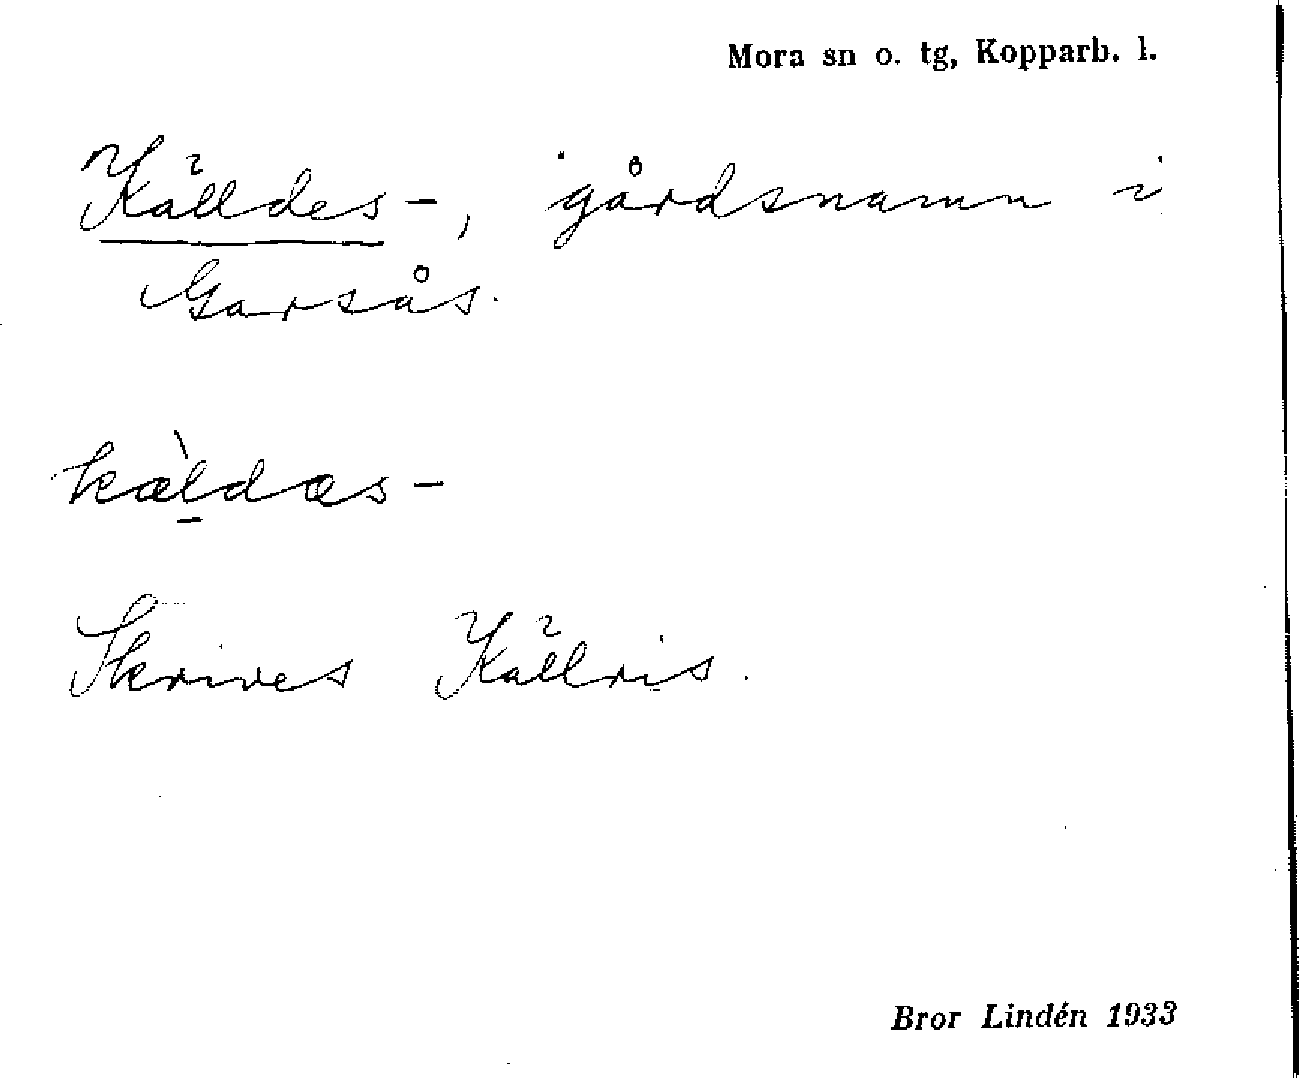 Mora sn o. tg, Kopparb. l.
Källdes-, gårdsnamn i
Garsås.
kæ̀ldæs-
Skrives Källris.
Bror Lindén 1933